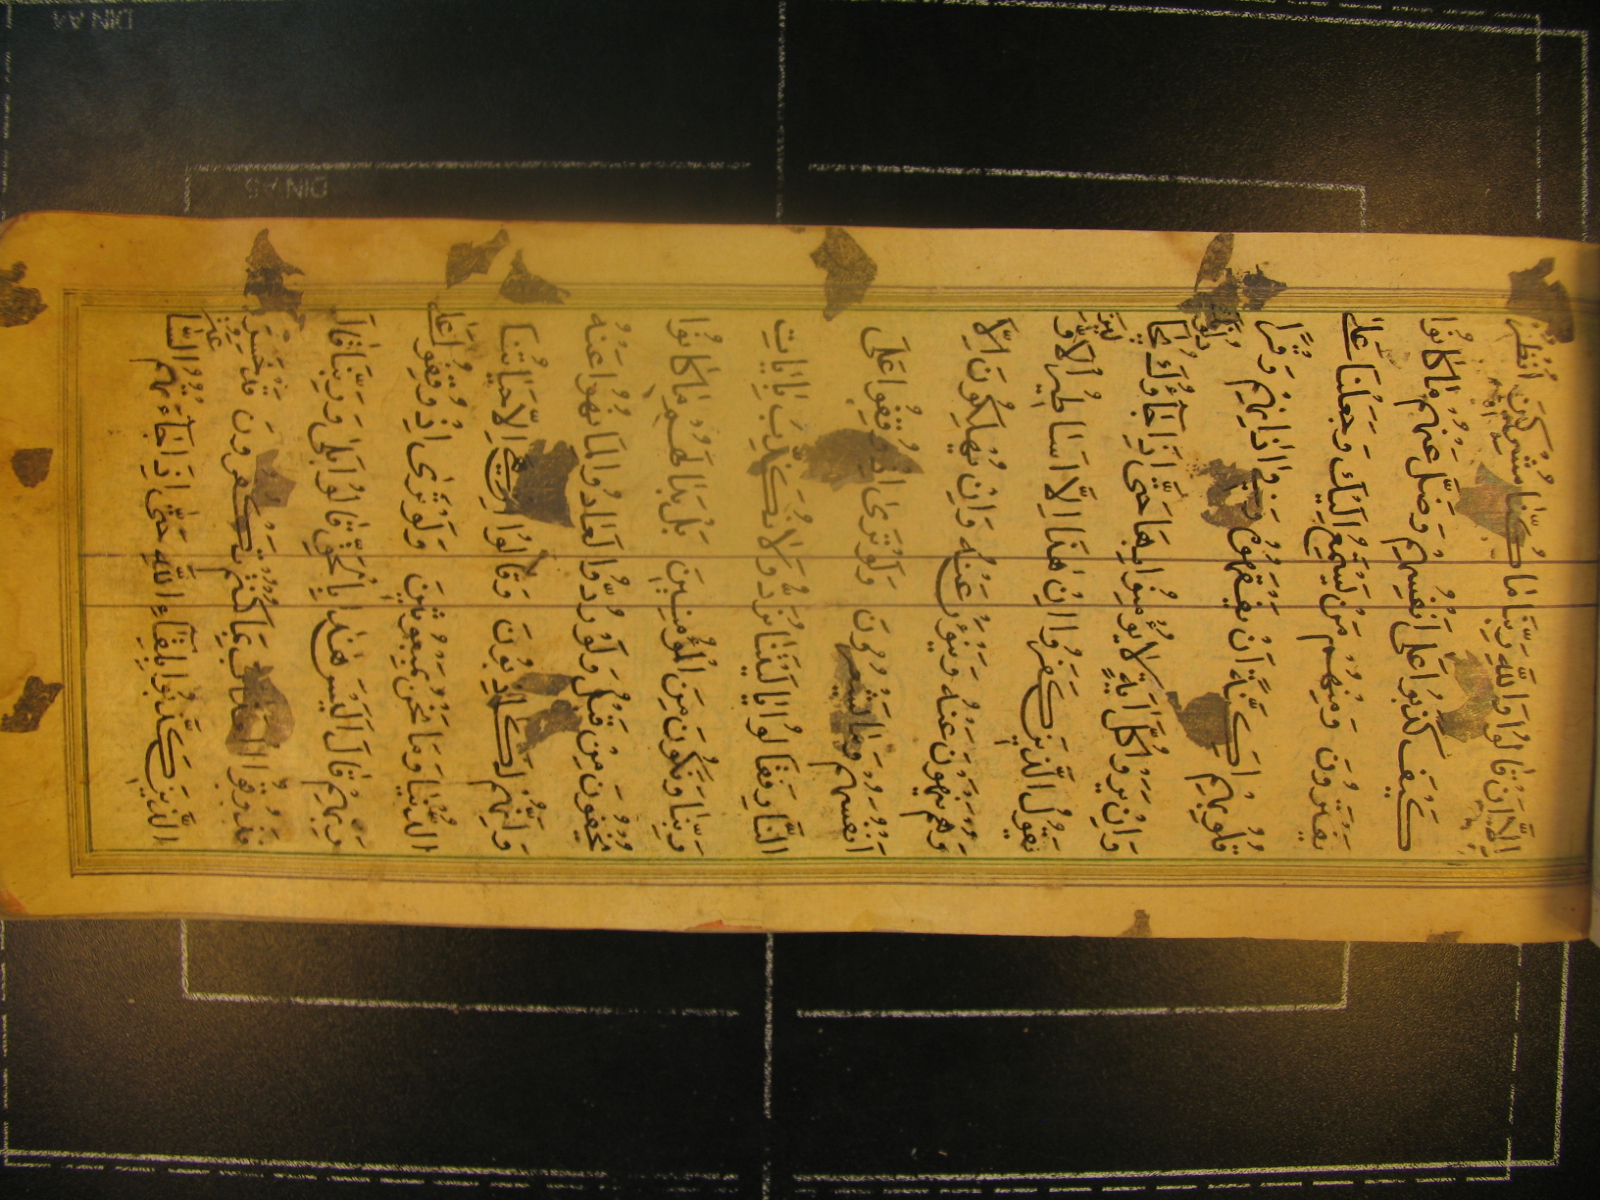 DIN A4
DIN A5
إِلَّا أَنْ قَالُوا وَاللَّهِ رَبِّنَا مَا كُنَّا مُشْرِكِينَ أُنْظُرْ
كَيْفَ كَذَبُوا عَلَى أَنْفُسِهِمْ وَضَلَّ عَنْهُمْ مَا كَانُوا
يَفْتَرُونَ وَمِنْهُمْ مَنْ يَسْتَمِعُ إِلَيْكَ وَجَعَلْنَا عَلَى
قُلُوبِهِمْ أَكِنَّةً أَنْ يَفْقَهُوهُ وَفِي اٰذَانِهِمْ وَقْرًا
وَإِنْ يَرَوْا كُلَّ اٰيَةٍ لَا يُؤْمِنُوا بِهَا حَتَّى إِذَا جَاؤُكَ يُجَادِلُونَكَ
يَقُولُ الَّذِينَ كَفَرُوا إِنْ هٰذَا إِلَّا أَسَاطِيرُ الْأَوَّلِينَ
وَهُمْ يَنْهَوْنَ عَنْهُ وَيَنْئَوْنَ عَنْهُ وَإِنْ يُهْلِكُونَ إِلَّا
أَنْفُسَهُمْ وَمَا يَشْعُرُونَ وَلَوْ تَرَى إِذْ وُقِفُوا عَلَى
النَّارِ فَقَالُوا يَا لَيْتَنَا نُرَدُّ وَلَا نُكَذِّبَ بِاٰيَاتِ
رَبِّنَا وَنَكُونَ مِنَ الْمُؤْمِنِينَ بَلْ بَدَا لَهُمْ مَا كَانُوا
يُخْفُونَ مِنْ قَبْلُ وَلَوْ رُدُّوا لَعَادُوا لِمَا نُهُوا عَنْهُ
وَإِنَّهُمْ لَكَاذِبُونَ وَقَالُوا إِنْ هِيَ إِلَّا حَيَاتُنَا
الدُّنْيَا وَمَا نَحْنُ بِمَبْعُوثِينَ وَلَوْ تَرَى إِذْ وُقِفُوا عَلَى
رَبِّهِمْ قَالَ أَلَيْسَ هٰذَا بِالْحَقِّ قَالُوا بَلَى وَرَبِّنَا قَالَ
فَذُوقُوا الْعَذَابَ بِمَا كُنْتُمْ تَكْفُرُونَ قَدْ خَسِرَ
الَّذِينَ كَذَّبُوا بِلِقَاءِ اللَّهِ حَتَّى إِذَا جَاءَتْهُمُ السَّاعَةُ